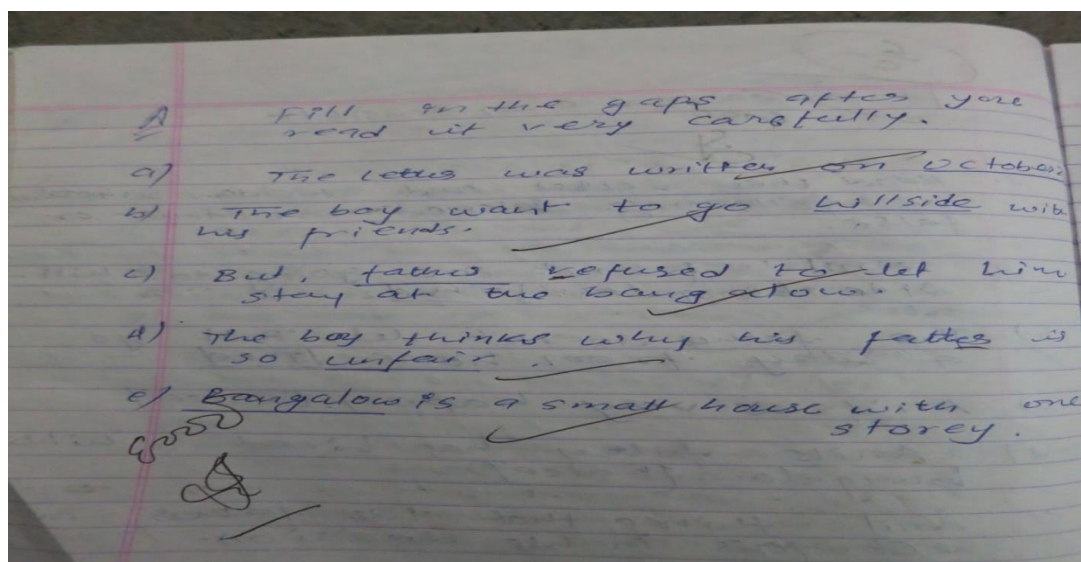 A Fill in the gaps after you
read it very carefully.
a) The letter was written on October.
b) The boy want to go hillside with
his friends.
c) But, father refused to let him
stay at the bangalow.
d) The boy thinks why his father is
so unfair..
e) Bangalow is a small house with one
storey.
Good